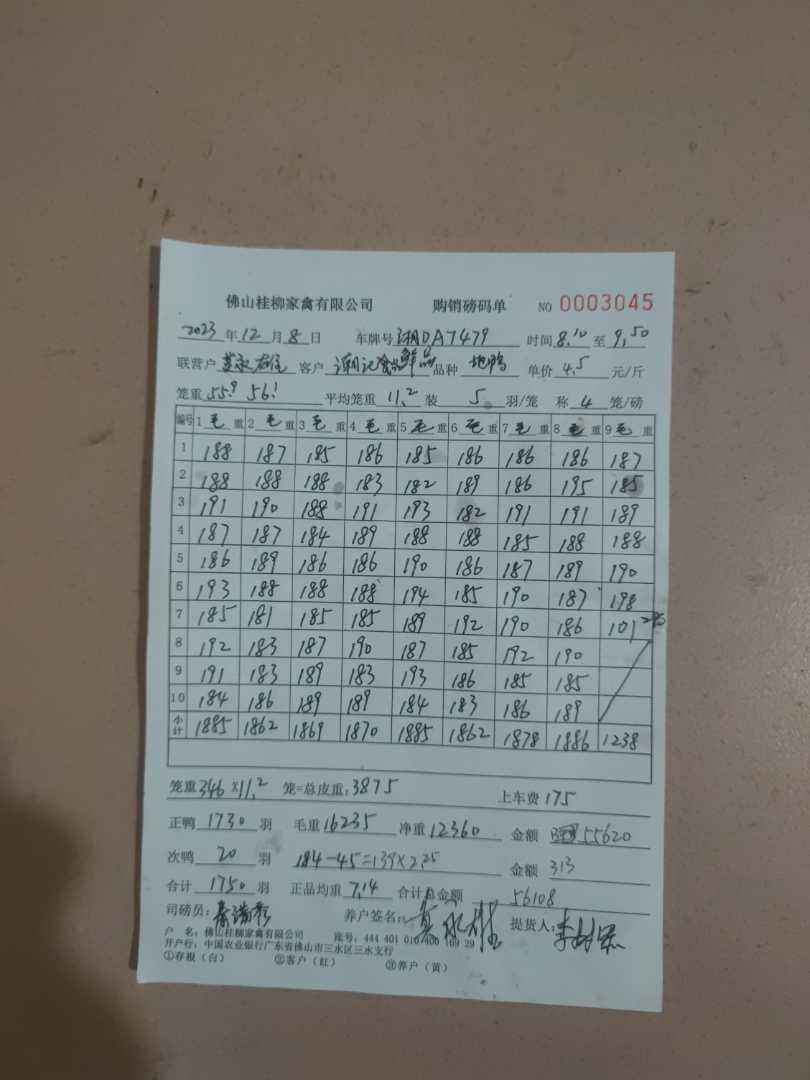 佛山桂柳家禽有限公司 购销磅码单 NO 0003045
2023 年 12 月 8 日 车牌号 湘DA7479 时间 8,10 至 9,50
联营户 客户 品种 地鸭 单价 4.5 元/斤
笼重 55.9 56.1 平均笼重 11.2 装 5 羽/笼 称 4 笼/磅
编号 1 毛 重 2 毛 重 3 毛 重 4 毛 重 5 毛 重 6 毛 重 7 毛 重 8 毛 重 9 毛 重
1 188 187 185 186 185 186 186 186 187
2 188 188 188 183 182 189 186 195 185
3 191 190 188 191 193 182 191 191 189
4 187 187 184 189 188 188 185 188 188
5 186 189 186 186 190 186 187 189 190
6 193 188 188 188 194 185 190 187 198
7 185 181 185 185 189 192 190 186 101
8 192 183 187 190 187 185 192 190
9 191 183 189 183 193 186 185 185
10 184 186 189 189 184 183 186 189
小计 1885 1862 1869 1870 1885 1862 1878 1886 1238
笼重 346 X11.2 笼=总皮重: 3875 上车费 175
正鸭 1730 羽 毛重 16235 净重 12360 金额 55620
次鸭 20 羽 184-45=139×2.25 金额 313
合计 1750 羽 正品均重 7.14 合计总金额 56108
司磅员: 养户签名: 提货人:
户 名: 佛山桂柳家禽有限公司 账号: 444 401 010 400 169 29
开户行: 中国农业银行广东省佛山市三水区三水支行
①存根(白) ②客户(红) ③养户(黄)